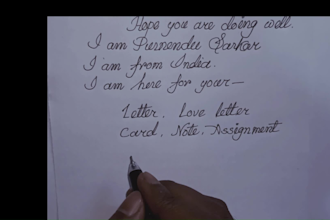 Hope you are doing well.
I am Purnendu Sarkar
I am from India.
I am here for your—
Letter, Love letter
Card, Note, Assignment